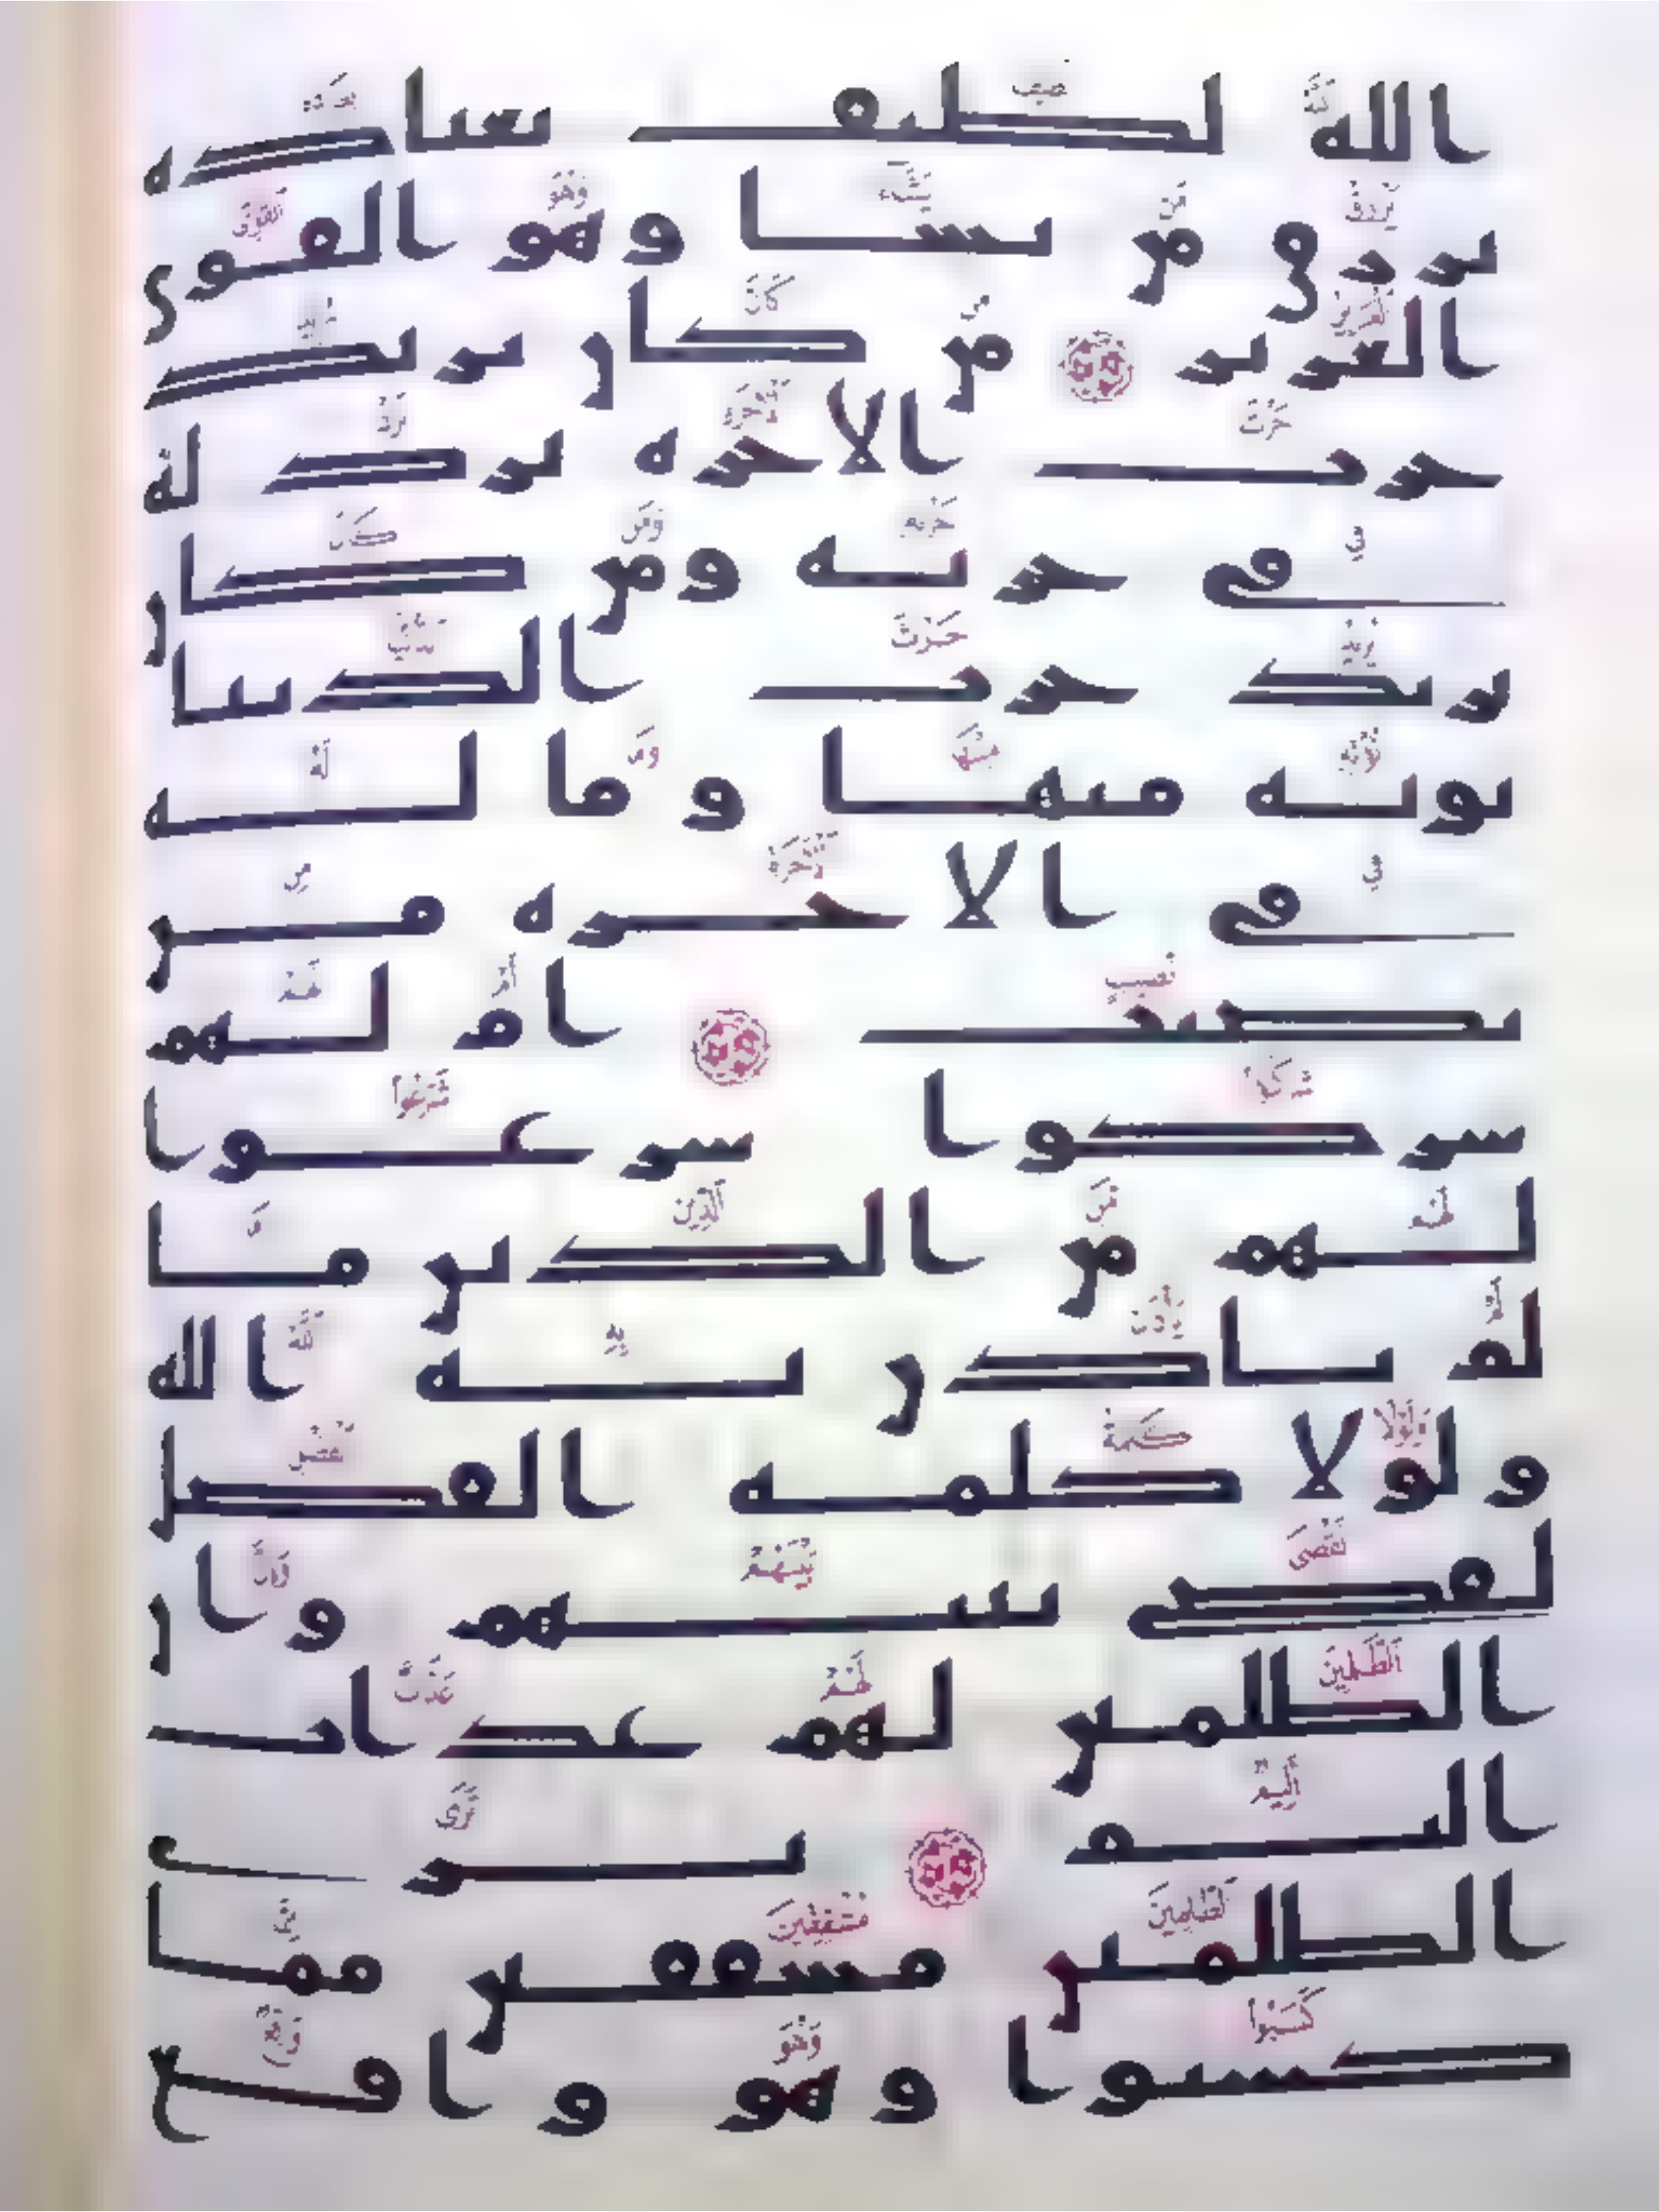 الله لطيف بعباده
يرزق من يشا وهو القوى
العزيز من كان يريد
حرث الاخره نزد له
فى حرثه ومن كان
يريد حرث الدنيا
نوته منها وما له
فى الاخره من
نصيب ام لهم
شركوا شرعوا
لهم من الدين ما
لم ياذن به الله
ولولا كلمه الفصل
لقضى بينهم وان
الظلمين لهم عذاب
اليم ترى
الظلمين مشفقين مما
كسبوا وهو واقع